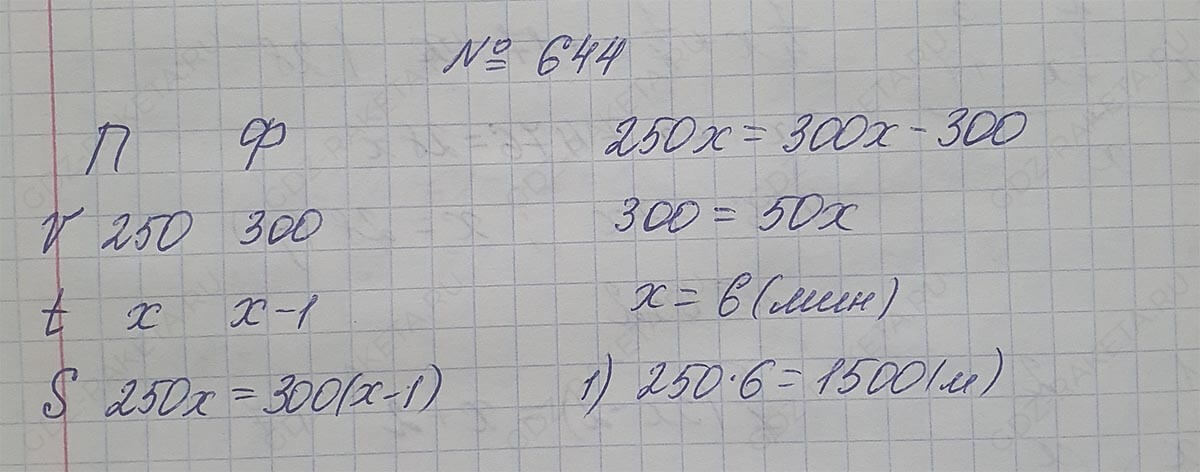 № 644
П Ф
V 250 300
t x x-1
S 250x = 300(x-1)
250x = 300x - 300
300 = 50x
x = 6 (мин)
1) 250·6 = 1500(м)